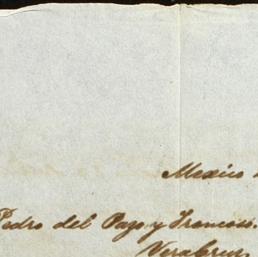 Mexico
Pedro del Paso y Troncoso.
Veracruz